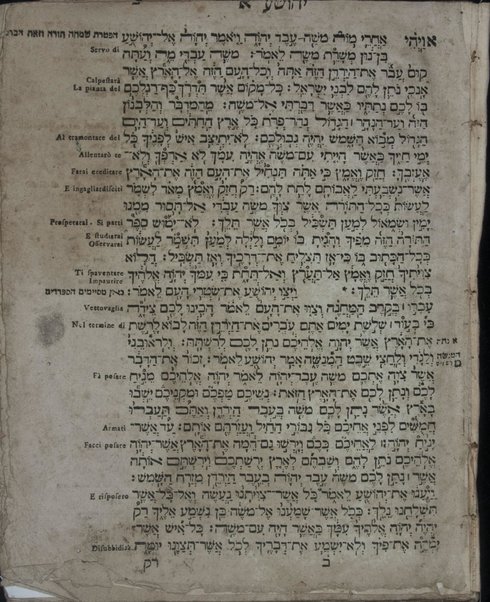 יהושע א
הפטרת שמחה תורה וזאת הברכה
א ויהי אחרי מות משה עבד יהוה ויאמר יהוה אל־יהושע
Servo di
בן־נון משרת משה לאמר: משה עבדי מת ועתה
קום עבר את־הירדן הזה אתה וכל־העם הזה אל־הארץ אשר
Calpesterà
אנכי נתן להם לבני ישראל: כל־מקום אשר תדרך כף־רגלכם
La pianta del
בו לכם נתתיו כאשר דברתי אל־משה: מהמדבר והלבנון
הזה ועד־הנהר הגדול נהר־פרת כל ארץ החתים ועד־הים
הגדול מבוא השמש יהיה גבולכם: לא־יתיצב איש לפניך כל
Al tramontare del
ימי חייך כאשר הייתי עם־משה אהיה עמך לא ארפך ולא
Allentarò te
אעזבך: חזק ואמץ כי אתה תנחיל את־העם הזה את־הארץ
Farai ereditare
אשר־נשבעתי לאבותם לתת להם: רק חזק ואמץ מאד לשמר
E ingagliardisciti
לעשות ככל־התורה אשר צוך משה עבדי אל־תסור ממנו
ימין ושמאול למען תשכיל בכל אשר תלך: לא־ימוש ספר
Prospererai. Si parti
התורה הזה מפיך והגית בו יומם ולילה למען תשמר לעשות
E studiarai
Osservarai
ככל־הכתוב בו כי־אז תצליח את־דרכיך ואז תשכיל: הלוא
צויתיך חזק ואמץ אל־תערץ ואל־תחת כי עמך יהוה אלהיך
Ti spaventare
Impaurire
בכל אשר תלך: * ויצו יהושע את־שטרי העם לאמר:
כאן מסיימים הספרדים
עברו בקרב המחנה וצוו את־העם לאמר הכינו לכם צידה
Vettovaglia
כי בעוד שלשת ימים אתם עברים את־הירדן הזה לבוא לרשת
Nel termine di
את־הארץ אשר יהוה אלהיכם נתן לכם לרשתה: ולראובני
ולגדי ולחצי שבט המנשה אמר יהושע לאמר: זכור את־הדבר
אשר צוה אתכם משה עבד־יהוה לאמר יהוה אלהיכם מניח
Fà posare
לכם ונתן לכם את־הארץ הזאת: נשיכם טפכם ומקניכם ישבו
בארץ אשר נתן לכם משה בעבר הירדן ואתם תעברו
חמשים לפני אחיכם כל גבורי החיל ועזרתם אותם: עד אשר־
Armati
יניח יהוה לאחיכם ככם וירשו גם־המה את־הארץ אשר־יהוה
Facci posare
אלהיכם נתן להם ושבתם לארץ ירשתכם וירשתם אותה
אשר נתן לכם משה עבד יהוה בעבר הירדן מזרח השמש:
ויענו את־יהושע לאמר כל אשר־צויתנו נעשה ואל־כל אשר
E risposero
תשלחנו נלך: ככל אשר־שמענו אל־משה כן נשמע אליך רק
יהיה יהוה אלהיך עמך כאשר היה עם־משה: כל־איש אשר־
ימרה את־פיך ולא־ישמע את־דבריך לכל אשר־תצונו יומת
Disubbidisca
ב רק